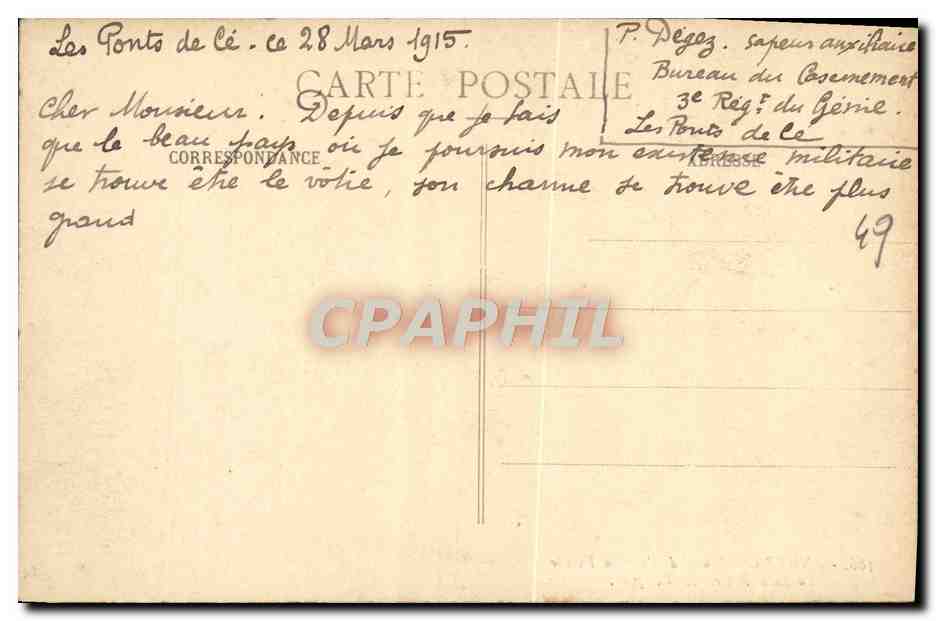 Les Ponts de Cé. ce 28 Mars 1915.
P. Dégez. sapeur auxiliaire
Bureau du Casernement
3e Régt. du Génie.
Les Ponts de Cé
CARTE POSTALE
Cher Monsieur. Depuis que je sais
que le beau pays où je poursuis mon existence militaire
CORRESPONDANCE
ADRESSE
se trouve être le vôtre, son charme se trouve être plus
grand
49
CPAPHIL